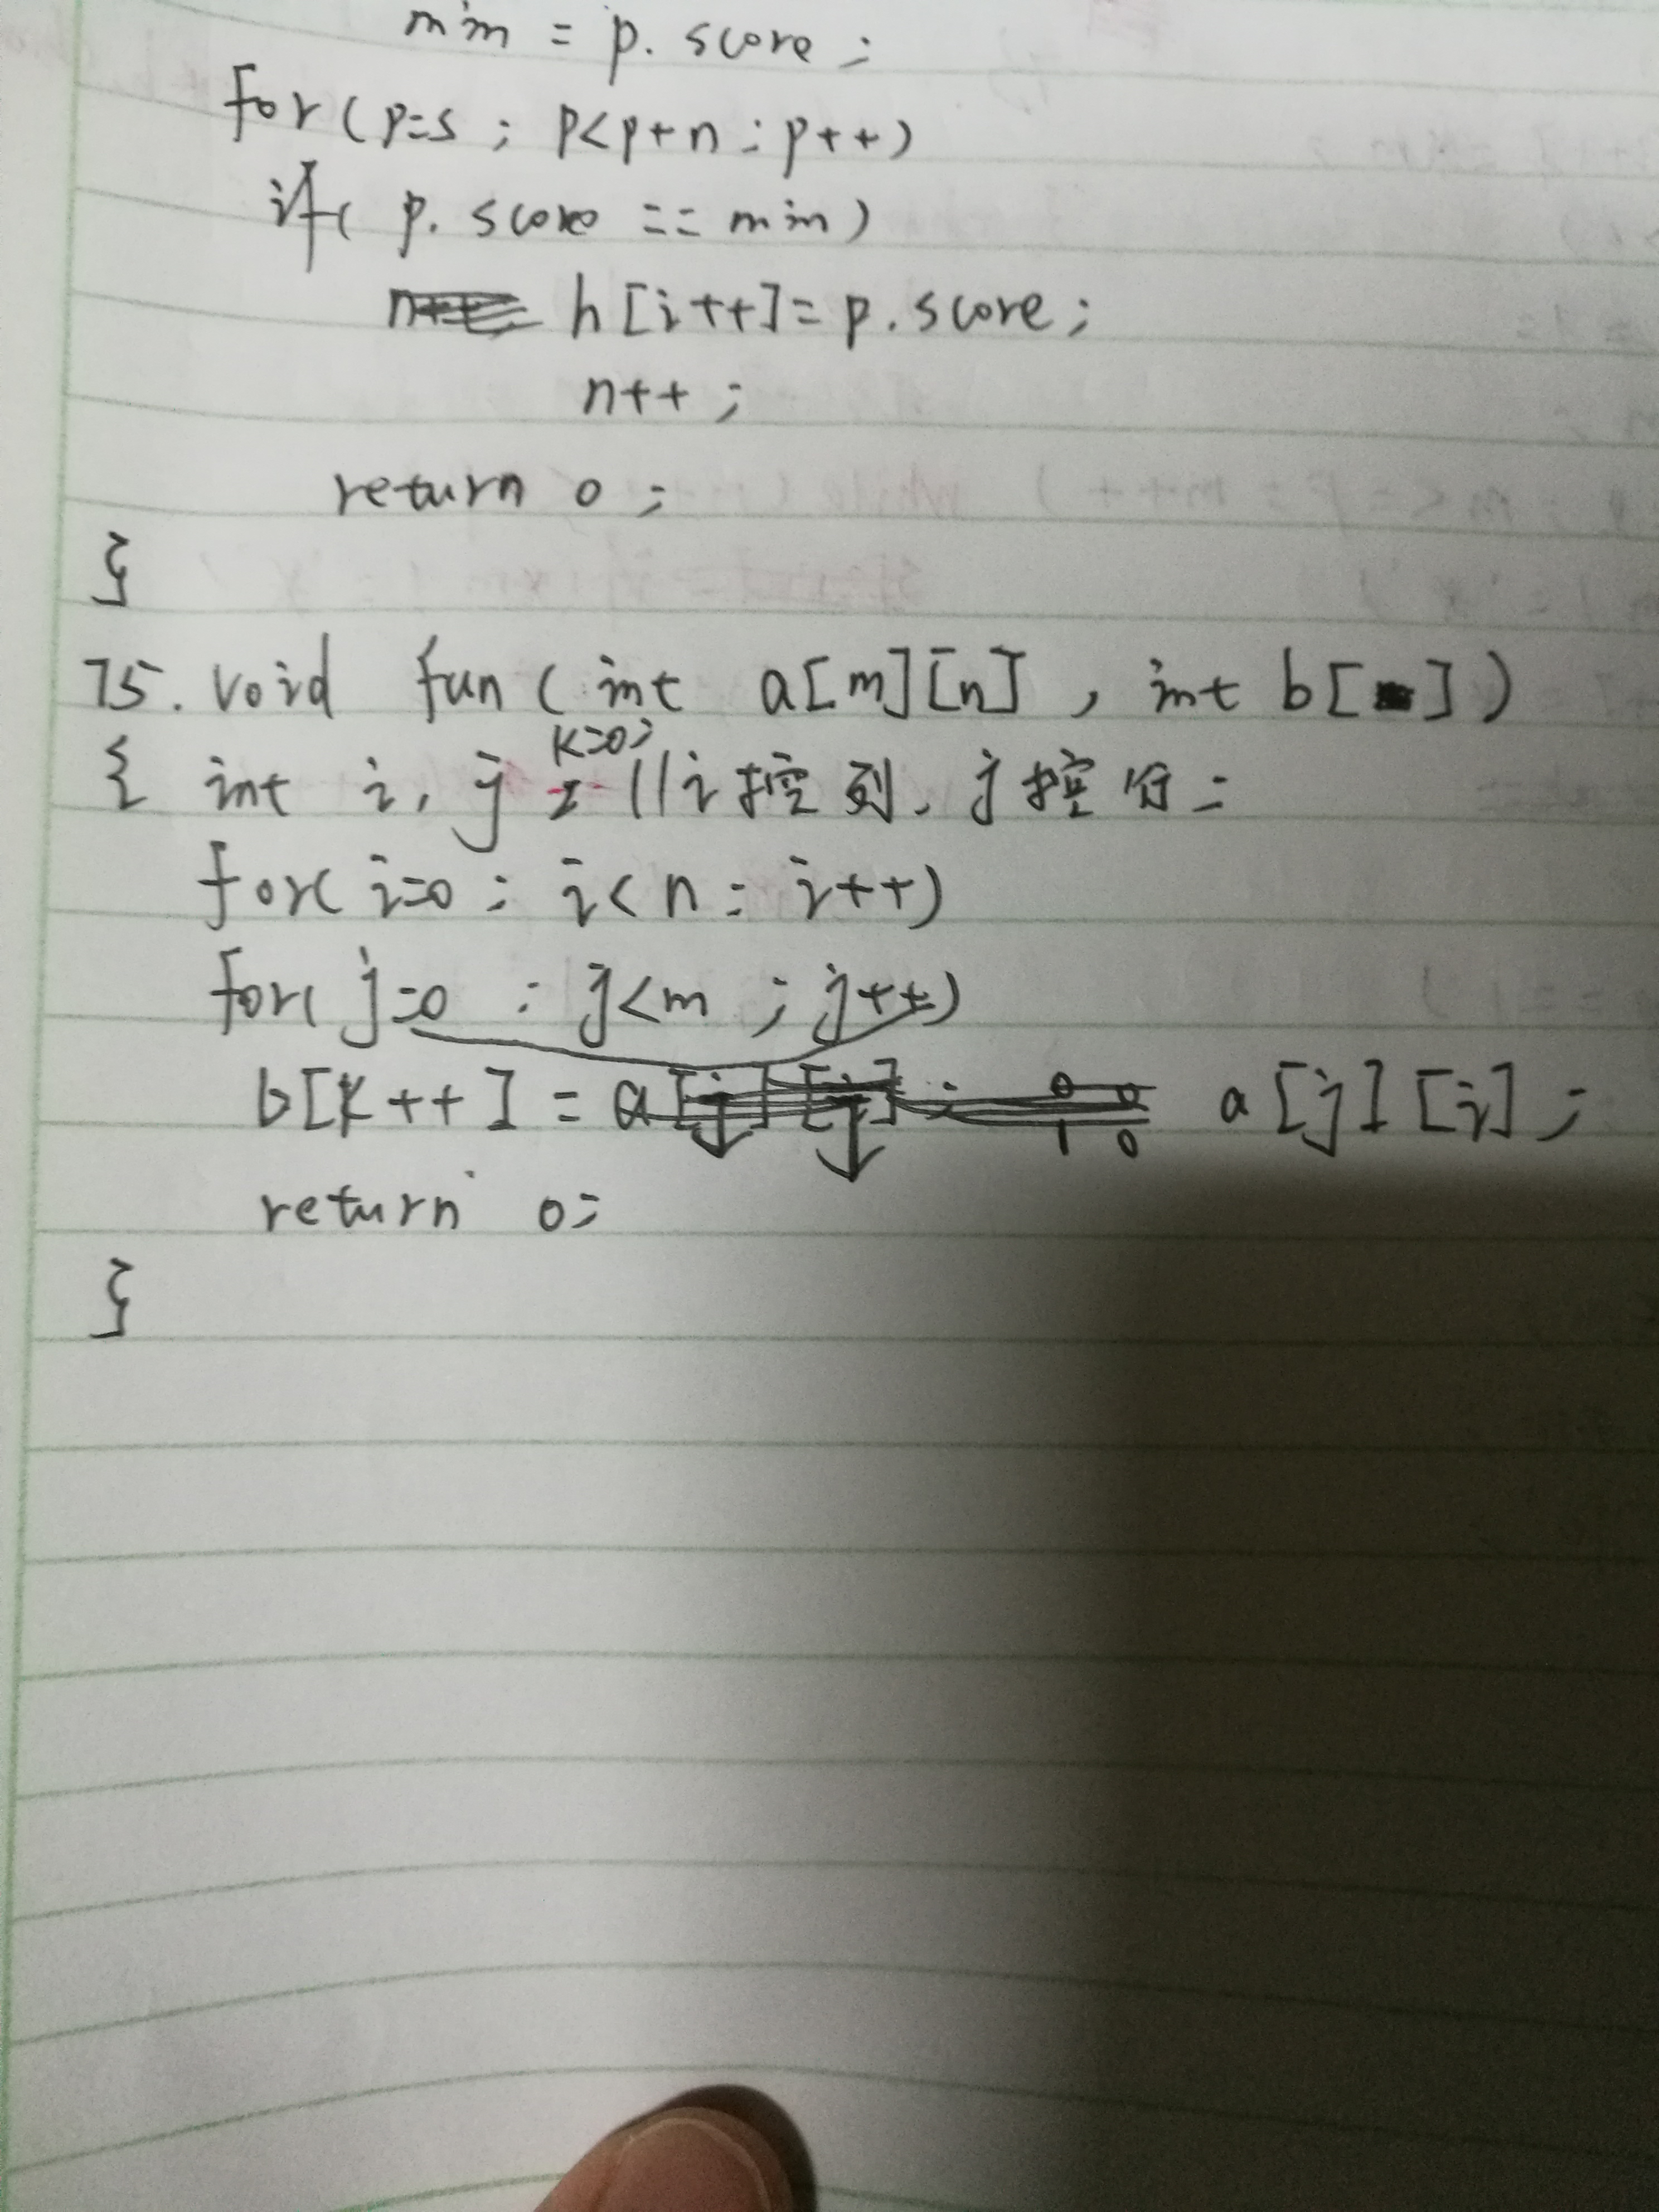 min = p. score ;
for (p=s ; p<p+n ; p++)
if( p. score == min)
h[i++]= p. score ;
n++ ;
return 0 ;
}
75. void fun ( int a[m][n] , int b[ ] )
k=0;
{ int i, j //i控列, j控行;
for( i=0 ; i<n ; i++)
for( j=0 ; j<m ; j++)
b[k++] = a[j][i] ;
0 0
1 0
return 0;
}